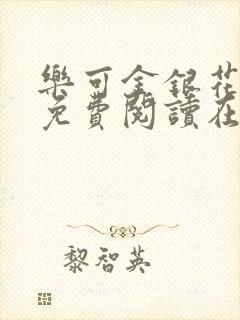 樂可金銀花
免費閱讀在
黎智英